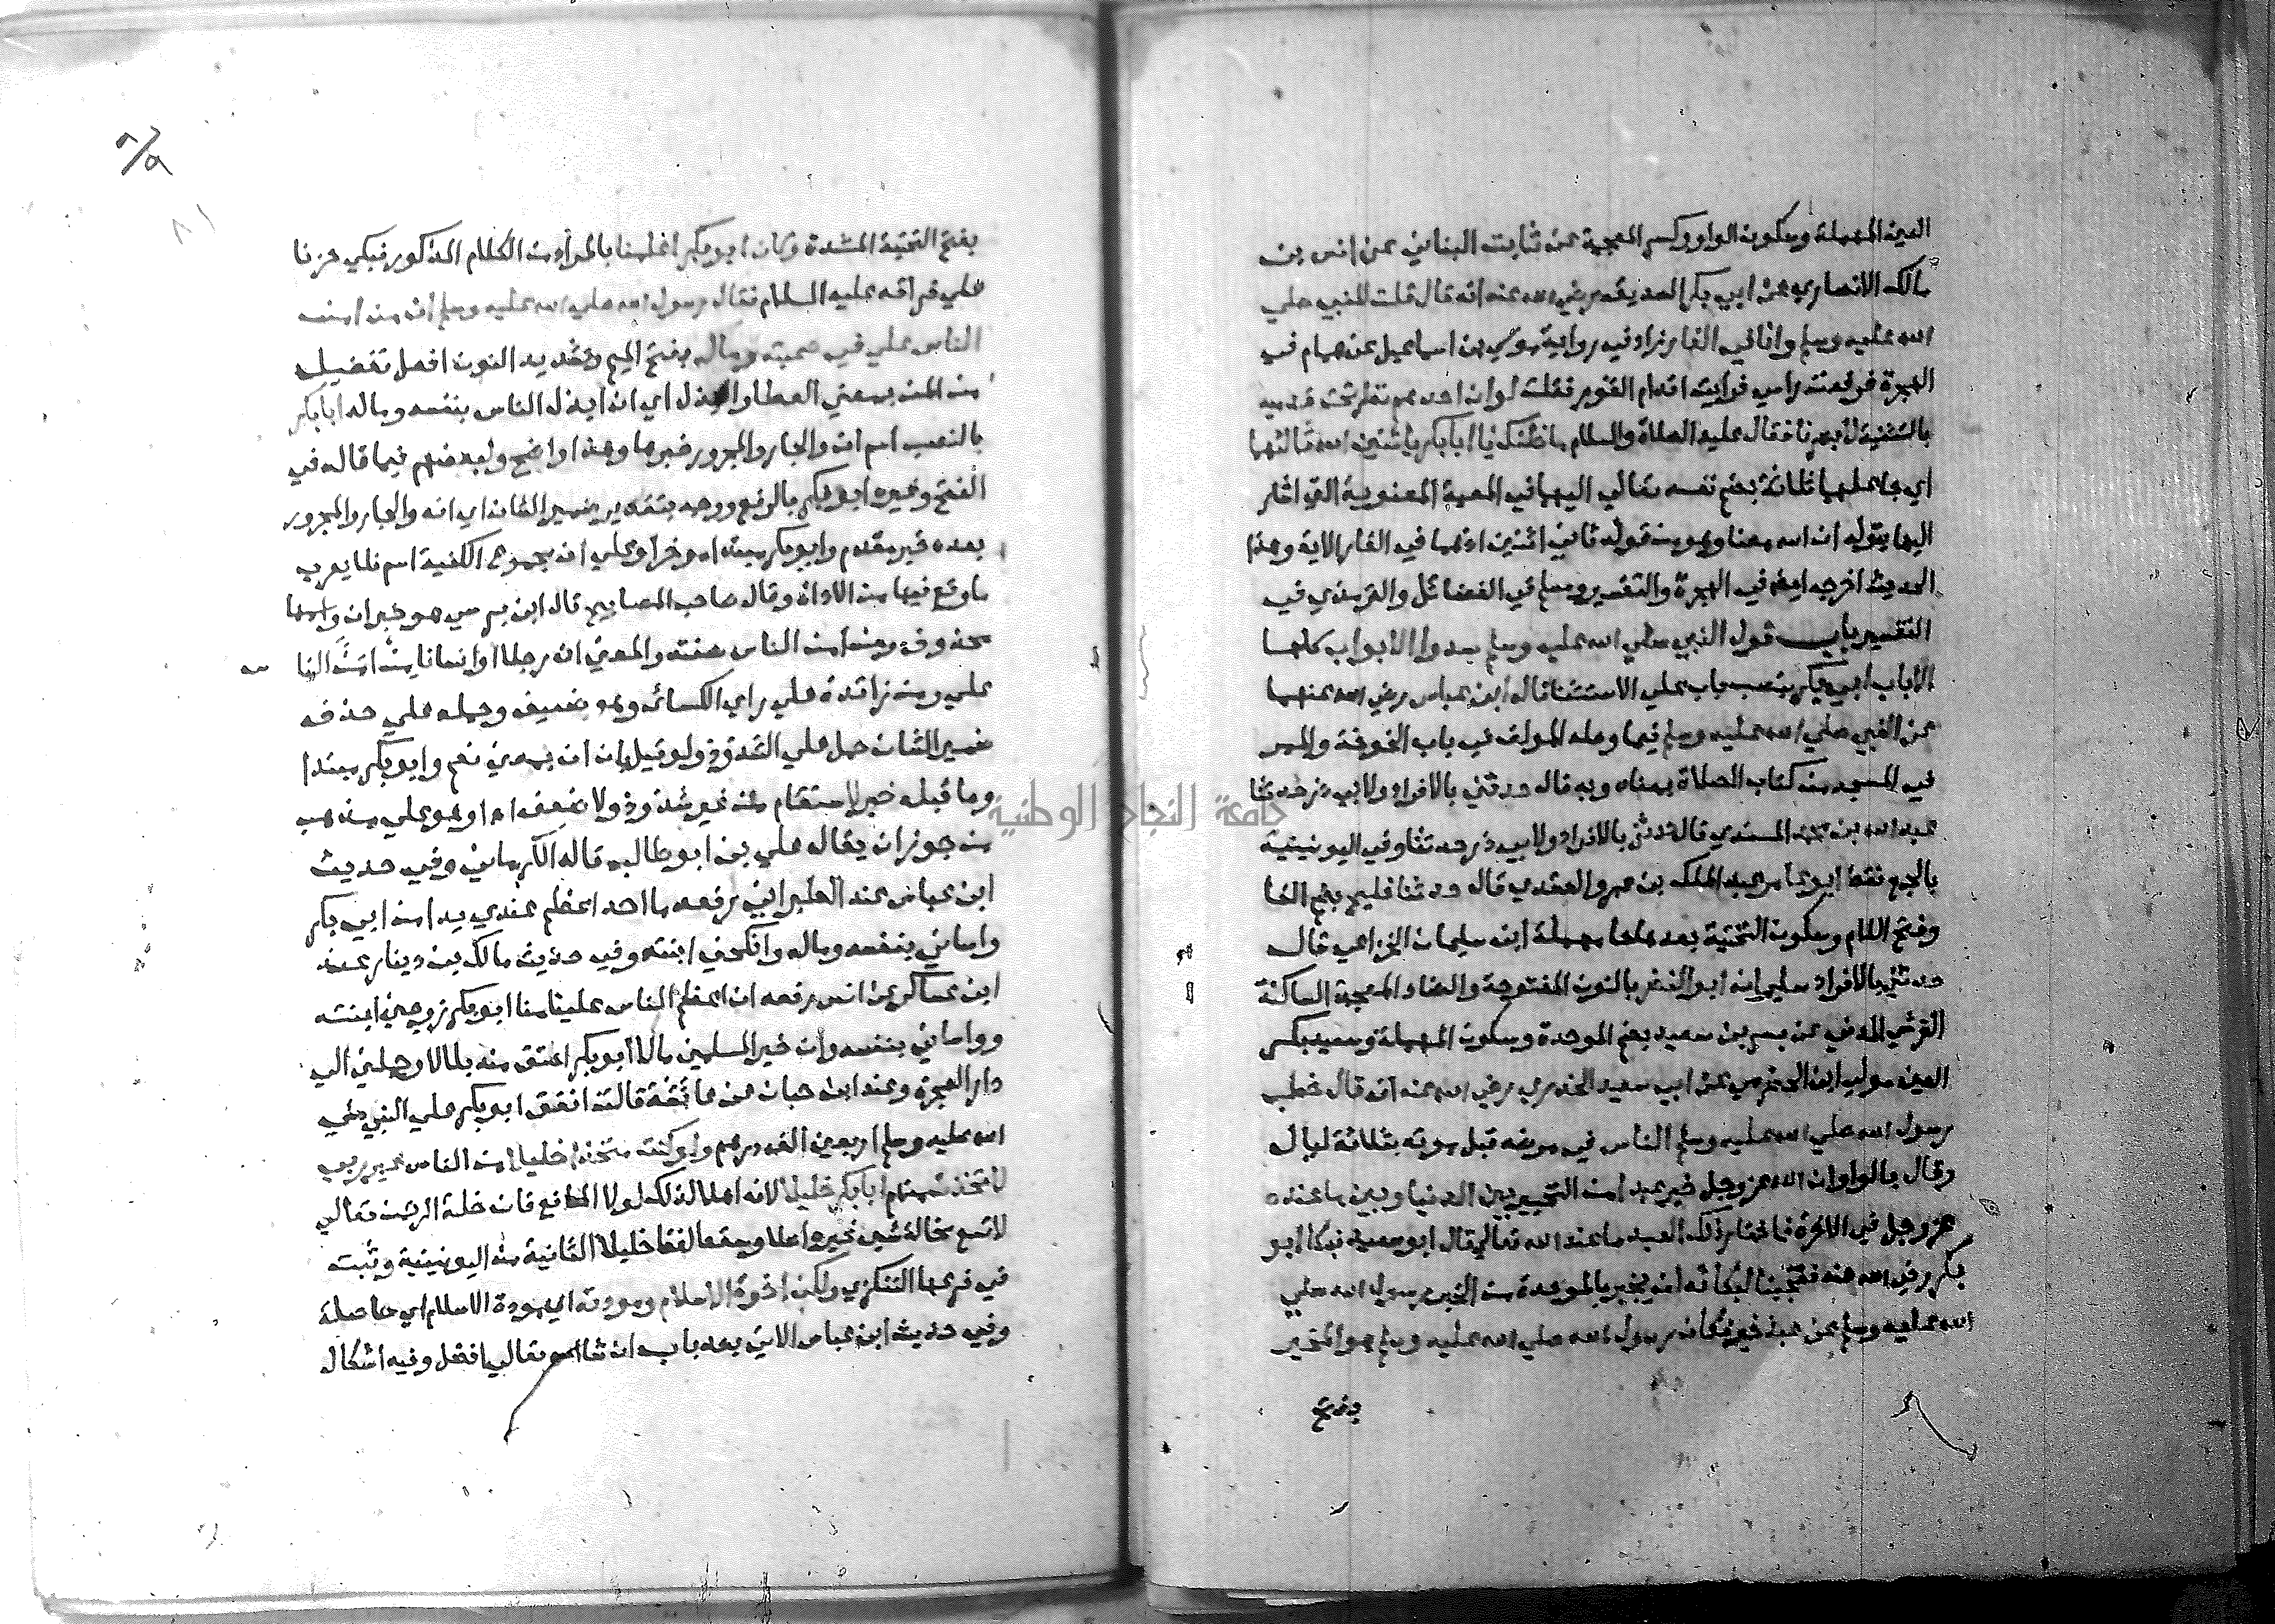 العين المهملة وسكون الواو وكسر المعجمة عن ثابت البناني عن انس بن
مالك الانصاري عن ابي بكر الصديق رضي الله عنه انه قال قلت للنبي صلي
الله عليه وسلم وانا في الغار زاد في رواية موسي بن اسماعيل عن همام في
الهجرة فرفعت راسي فرايت اقدام القوم فقلت لو ان احدهم نظر تحت قدميه
بالتثنية لابصرنا فقال عليه الصلاة والسلام ما ظنك يا ابا بكر باثنين الله ثالثهما
اي جاعلهما ثلاثة بضم نفسه تعالي اليهما في المعية المعنوية التي اشار
اليها بقوله ان الله معنا وهو من قوله ثاني اثنين اذ هما في الغار الاية وهذا
الحديث اخرجه ايضا في الهجرة والتفسير ومسلم في الفضائل والترمذي في
التفسير باب قول النبي صلي الله عليه وسلم سدوا الابواب كلها
الا باب ابي بكر بنصب باب علي الاستثنا قاله ابن عباس رضي الله عنهما
عن النبي صلي الله عليه وسلم فيما وصله المولف في باب الخوخة والممر
في المسجد من كتاب الصلاة بمعناه وبه قال حدثني بالافراد ولابي ذر حدثنا
عبد الله بن محمد المسندي قال حدثني بالافراد ولابي ذر حدثنا وفي اليونينية
بالجمع فقط ابو عامر عبد الملك بن عمرو العقدي قال حدثنا فليح بضم الفا
وفتح اللام وسكون التحتية بعدها حا مهملة ابن سليمان الخزاعي قال
حدثني بالافراد سالم ابو النضر بالنون المفتوحة والضاد المعجمة الساكنة
القرشي المدني عن بسر بن سعيد بضم الموحدة وسكون المهملة وسعيد بكسر
العين مولي ابن الحضرمي عن ابي سعيد الخدري رضي الله عنه انه قال خطب
رسول الله صلي الله عليه وسلم الناس في مرضه قبل موته بثلاثة ليال
وقال بالواو ان الله عز وجل خير عبدا من التخيير بين الدنيا وبين ما عنده
عز وجل في الاخرة فاختار ذلك العبد ما عند الله تعالي قال ابو سعيد فبكا ابو
بكر رضي الله عنه فعجبنا لبكائه ان يخبر بالموحدة من الخبر رسول الله صلي
الله عليه وسلم عن عبد خير فكان رسول الله صلي الله عليه وسلم هو المخير
بفتح
بفتح التحتية المشددة وكان ابو بكر اعلمنا بالمراد من الكلام المذكور فبكي حزنا
علي فراقه عليه السلام فقال رسول الله صلي الله عليه وسلم ان من امن
الناس علي في صحبته وماله بفتح الميم وتشديد النون افعل تفضيل
من المن بمعني العطا والبذل اي ان ابذل الناس بنفسه وماله ابا بكر
بالنصب اسم ان والجار والمجرور خبرها وهذا واضح ولبعضهم فيما قاله في
الفتح وغيره ابو بكر بالرفع ووجه بتقدير ضمير الشان اي انه والجار والمجرور
بعده خبر مقدم وابو بكر مبتدا موخر او علي ان مجموع الكنية اسم فلا يعرب
ما وقع فيها من الاداة وقال صاحب المصابيح قال ابن بري هو خبر ان واسمها
محذوف ومن امن الناس صفته والمعني ان رجلا او انسانا من امن النا س
علي ومن زائدة علي راي الكسائي وهو ضعيف وحمله علي حذف
ضمير الشان حمل علي الشذوذ ولو قيل بان ان بمعني نعم وابو بكر مبتدا
وما قبله خبر لاستقام من غير شذوذ ولا ضعف اه او هو علي مذهب
من جوز ان يقال علي بن ابو طالب قاله الكرماني وفي حديث
ابن عباس عند الطبراني رفعه ما احد اعظم عندي يدا من ابي بكر
واساني بنفسه وماله وانكحني ابنته وفي حديث مالك بن دينار عند
ابن عساكر عن انس رفعه ان اعظم الناس علينا منا ابو بكر زوجني ابنته
وواساني بنفسه وان خير المسلمين مالا ابو بكر اعتق منه بلالا وحملني الي
دار الهجرة وعند ابن حبان عن عائشة قالت انفق ابو بكر علي النبي صلي
الله عليه وسلم اربعين الف درهم ولو كنت متخذا خليلا من الناس غير ربي
لاتخذت منهم ابا بكر خليلا لانه اهلا لذلك لولا المانع فان خلة الرحمن تعالي
لا تسع مخالة شي غيره اصلا وسقط لفظ خليلا الثانية من اليونينية وثبت
في فرعها التنكزي ولكن اخوة الاسلام ومودته اي مودة الاسلام اي حاصلة
وفي حديث ابن عباس الاتي بعد باب ان شا الله تعالي افضل وفيه اشكال
جامعة النجاح الوطنية